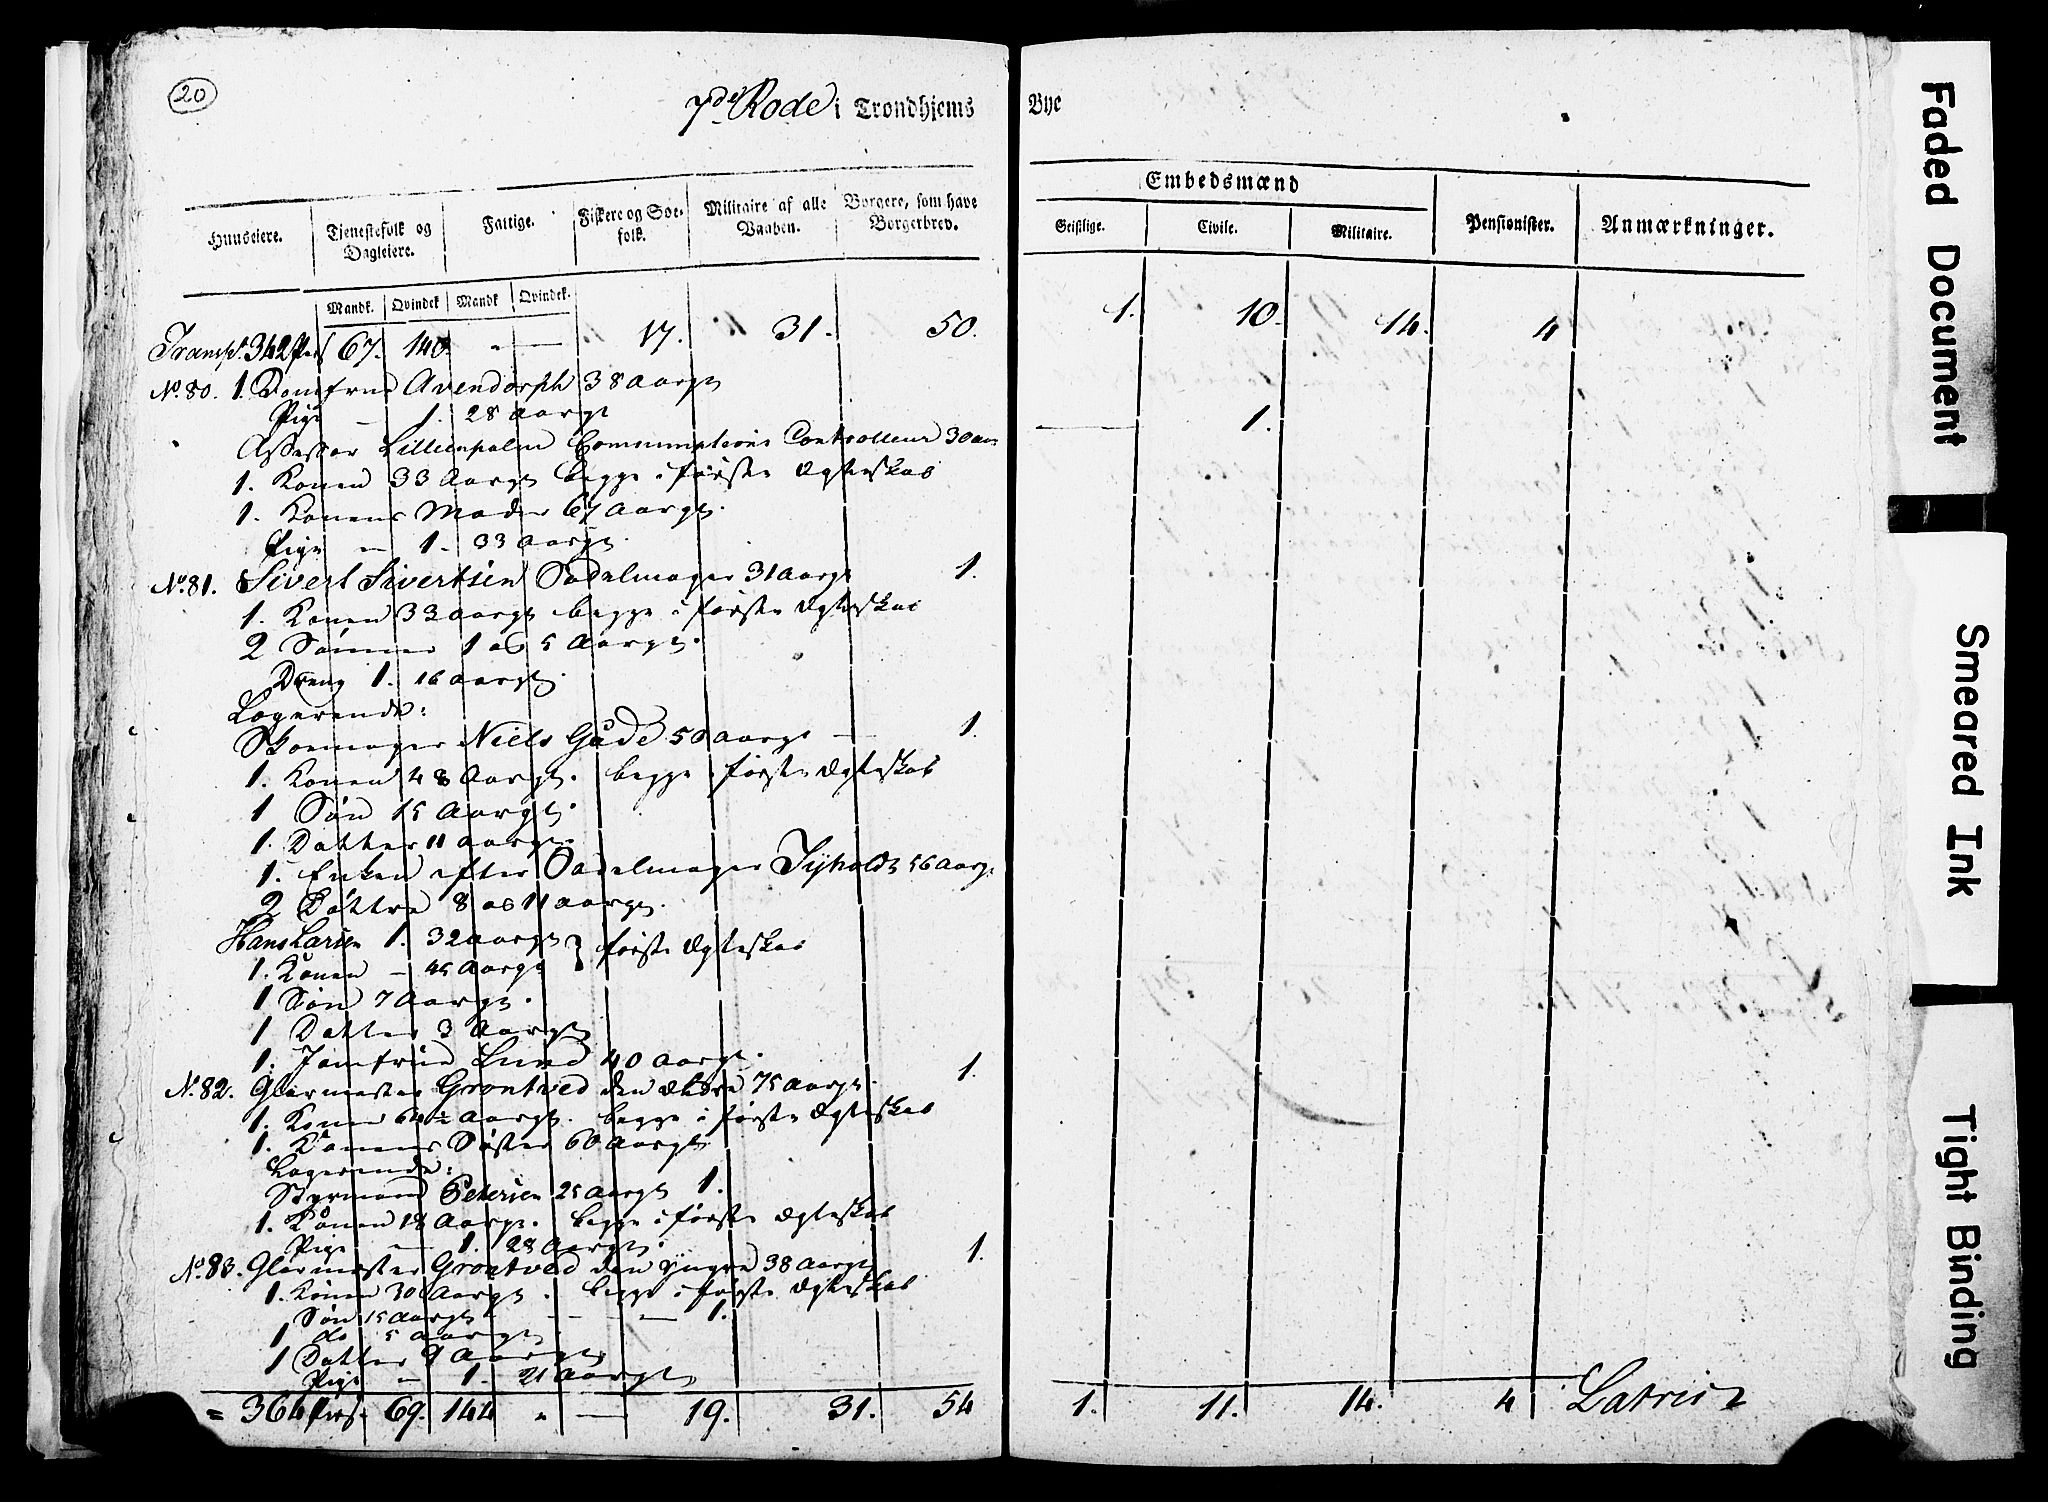 20
7de Rode i Trondhjems Bye
Huuseiere. Tjenestefolk og Dagleiere. Fattige. Fiskere og Søefolk. Militaire af alle Vaaben. Borgere, som have Borgerbrev. Embedsmænd Pensionister. Anmærkninger.
Geistlige. Civile. Militaire.
Mandk. Qvindek Mandk Qvindek.
Transpt. 342 Pers 67. 140. " — 17. 31. 50. 1. 10. 14. 4
No. 80. 1. Jomfrue Avendorph 38 Aarge
Pige — 1. 28 Aarge
Assessor Lillienpalm Consumptions Controlleur 30 aar 1.
1. Konen 33 Aarge begge i første Ægteskab
1. Konens Moder 67 Aarge.
Pige — 1. 33 Aarge.
No. 81. Sivert Sivertsen Sadelmager 31 Aarge 1.
1. Konen 32 aarge begge i første Ægteskab
2 Sønner 1 og 5 Aarge.
Dreng 1. 16 aarge.
Logerende:
Skoemager Niels Gude 50 aarge — 1.
1. Konen 48 Aarge. begge i første Ægteskab
1 Søn 15 Aarge.
1. Datter 11 aarge.
1. Enken efter Sadelmager 56 Aarge
2 Døttre 8 og 11 aarge.
Hans Larsen 1. 32 aarge } første Ægteskab
1. Konen — 45 Aarge
1 Søn 7 Aarge.
1 Datter 3 Aarge
1. Jomfrue Lund 40 aarge.
No. 82. Glarmester Grontved den ældre 75 aarge. 1.
1. Konen 64½ Aarge. begge i første Ægteskab
1. Konens Søster 60 Aarge
Logerende:
Styrmand Petersen 25 Aarge 1.
1. Konen 18 Aarge. begge i første Ægteskab
Pige — 1. 28 Aarge.
No. 83. Glarmester Grontved den yngre 38 aarge 1.
1. Konen 30 Aarge. begge i første Ægteskab
Søn 15 Aarge — — — 1.
1 do 5 aarge
1 Datter 9 Aarge
Pige — 1. 21 Aarge
= 364 Pers. 69. 144 " — 19. 31. 54 1. 11. 14. 4 Latris
Faded Document
Smeared Ink
Tight Binding